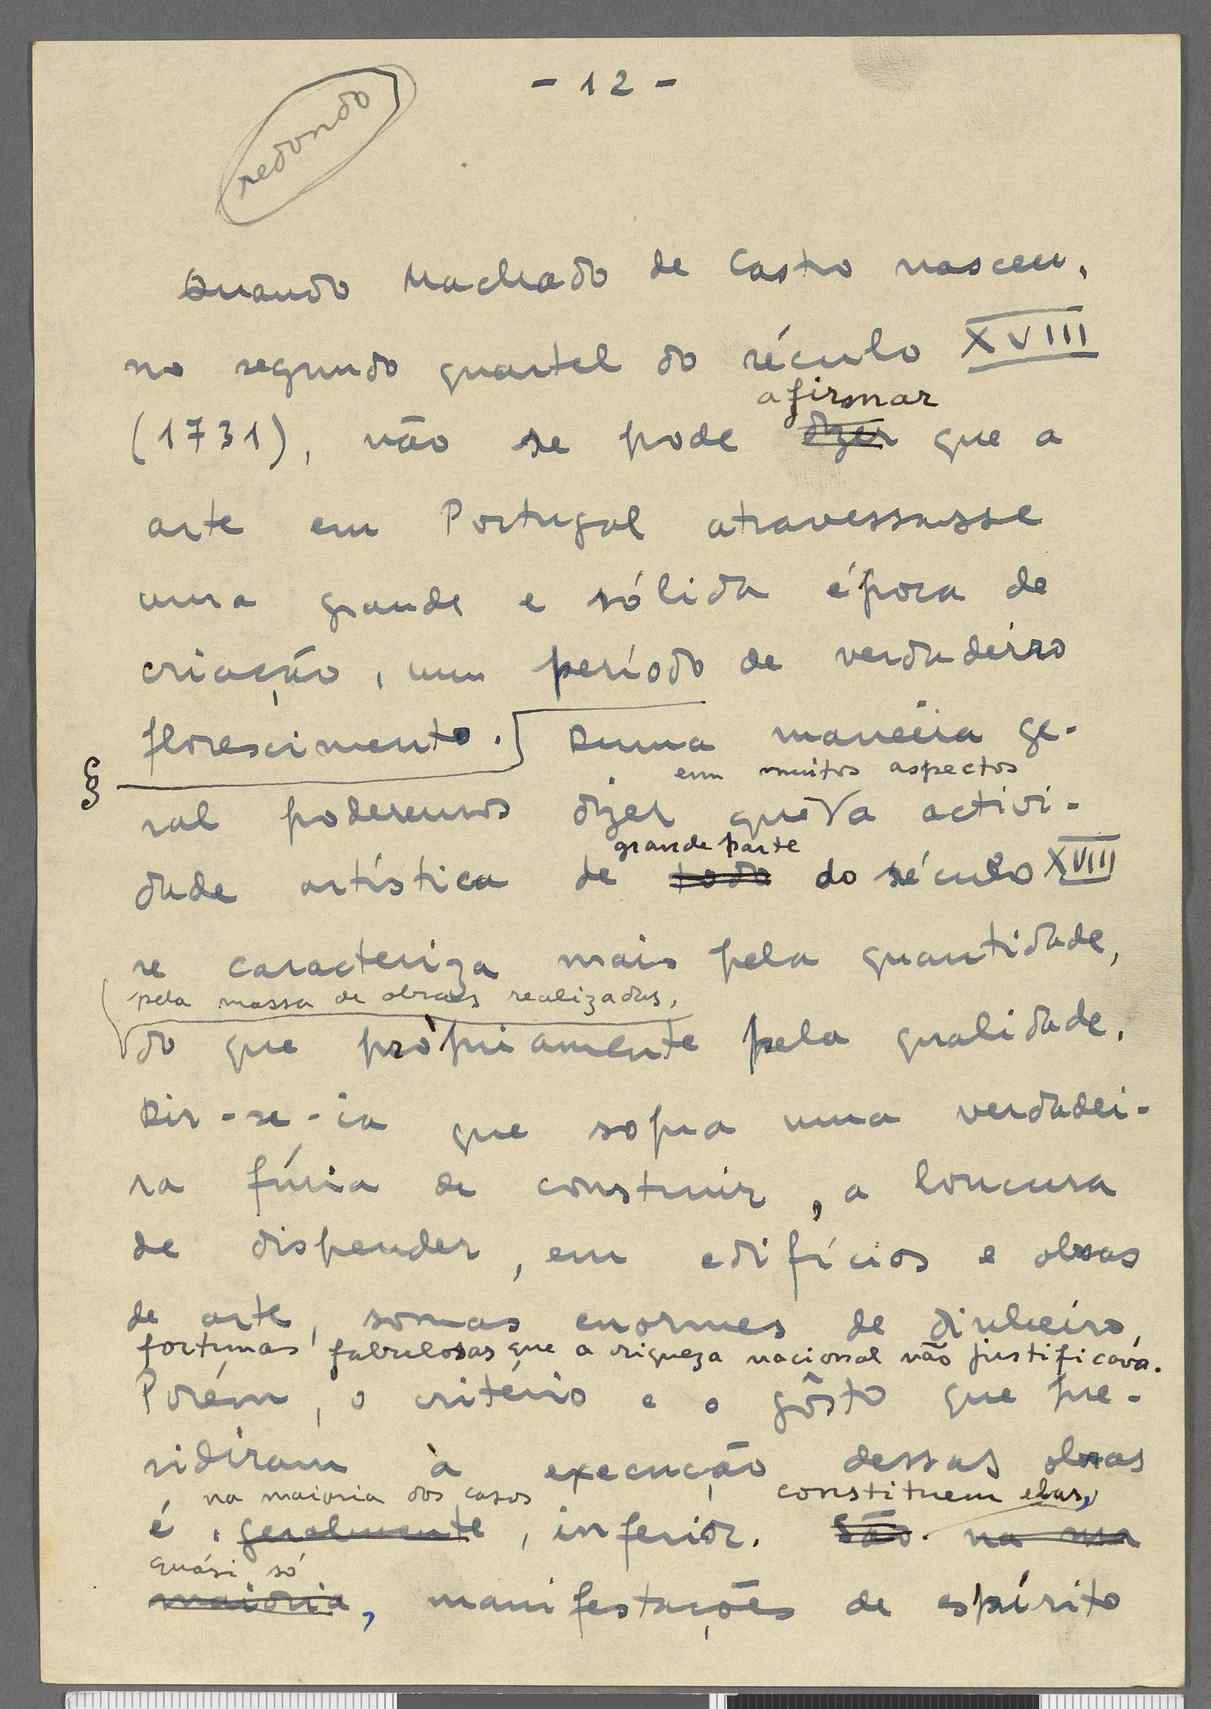 - 12 -
redondo
Quando Machado de Castro nasceu,
no segundo quartel do século XVIII
afirmar
(1731), não se pode dizer que a
arte em Portugal atravessasse
uma grande e sólida época de
criação, um período de verdadeiro
florescimento. Duma maneira ge-
§
em muitos aspectos
ral poderemos dizer que a activi-
grande parte
dade artística de todo do século XVIII
se caracteriza mais pela quantidade,
pela massa de obras realizadas,
do que pròpriamente pela qualidade.
Dir-se-ia que sopra uma verdadei-
ra fúria de construir, a loucura
de dispender, em edifícios e obras
de arte, somas enormes de dinheiro,
fortunas fabulosas que a riqueza nacional não justificava.
Porém, o critério e o gôsto que pre-
sidiram à execução dessas obras
na maioria dos casos constituem elas,
é, geralmente, inferior. São na ma
quási só
maioria, manifestações de espírito